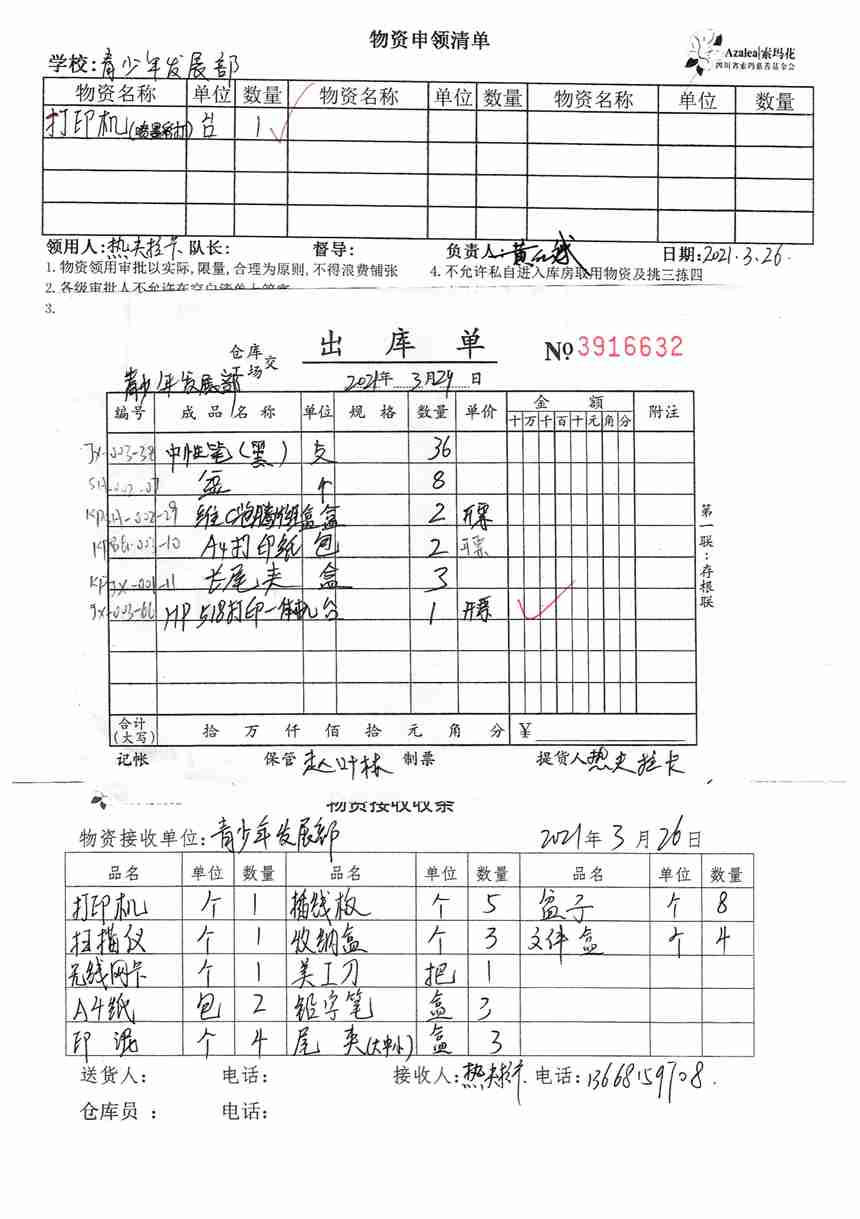 物资申领清单
Azalea|索玛花
四川省索玛慈善基金会
学校:青少年发展部
物资名称 单位 数量 物资名称 单位 数量 物资名称 单位 数量
打印机(喷墨彩打) 台 1
领用人:热夫拉卡 队长: 督导: 负责人: 日期:2021.3.26.
1.物资领用审批以实际,限量,合理为原则,不得浪费铺张 4.不允许私自进入库房取用物资及挑三拣四
2.各级审批人不允许在空白清单上签字
3.
出库单
仓库 交
场
№ 3916632
青少年发展部 2021年 3月29日
编号 成品名称 单位 规格 数量 单价 金额 附注
十万千百十元角分
JX-003-38 中性笔(黑) 支 36
盒 个 8
维C泡腾 盒 2 开票
A4打印纸 包 2 开票
长尾夹 盒 3
JX-003-66 HP 518打印一体机 台 1 开票
第一联:存根联
合计(大写) 拾 万 仟 佰 拾 元 角 分 ¥
记帐 保管 赵叶林 制票 提货人 热夫拉卡
物资接收收条
物资接收单位:青少年发展部 2021年3月26日
品名 单位 数量 品名 单位 数量 品名 单位 数量
打印机 个 1 插线板 个 5 盒子 个 8
扫描仪 个 1 收纳盒 个 3 文件盒 个 4
无线网卡 个 1 美工刀 把 1
A4纸 包 2 铅字笔 盒 3
印泥 个 4 尾夹(大中小) 盒 3
送货人: 电话: 接收人:热夫拉卡 电话:13668159708.
仓库员: 电话: